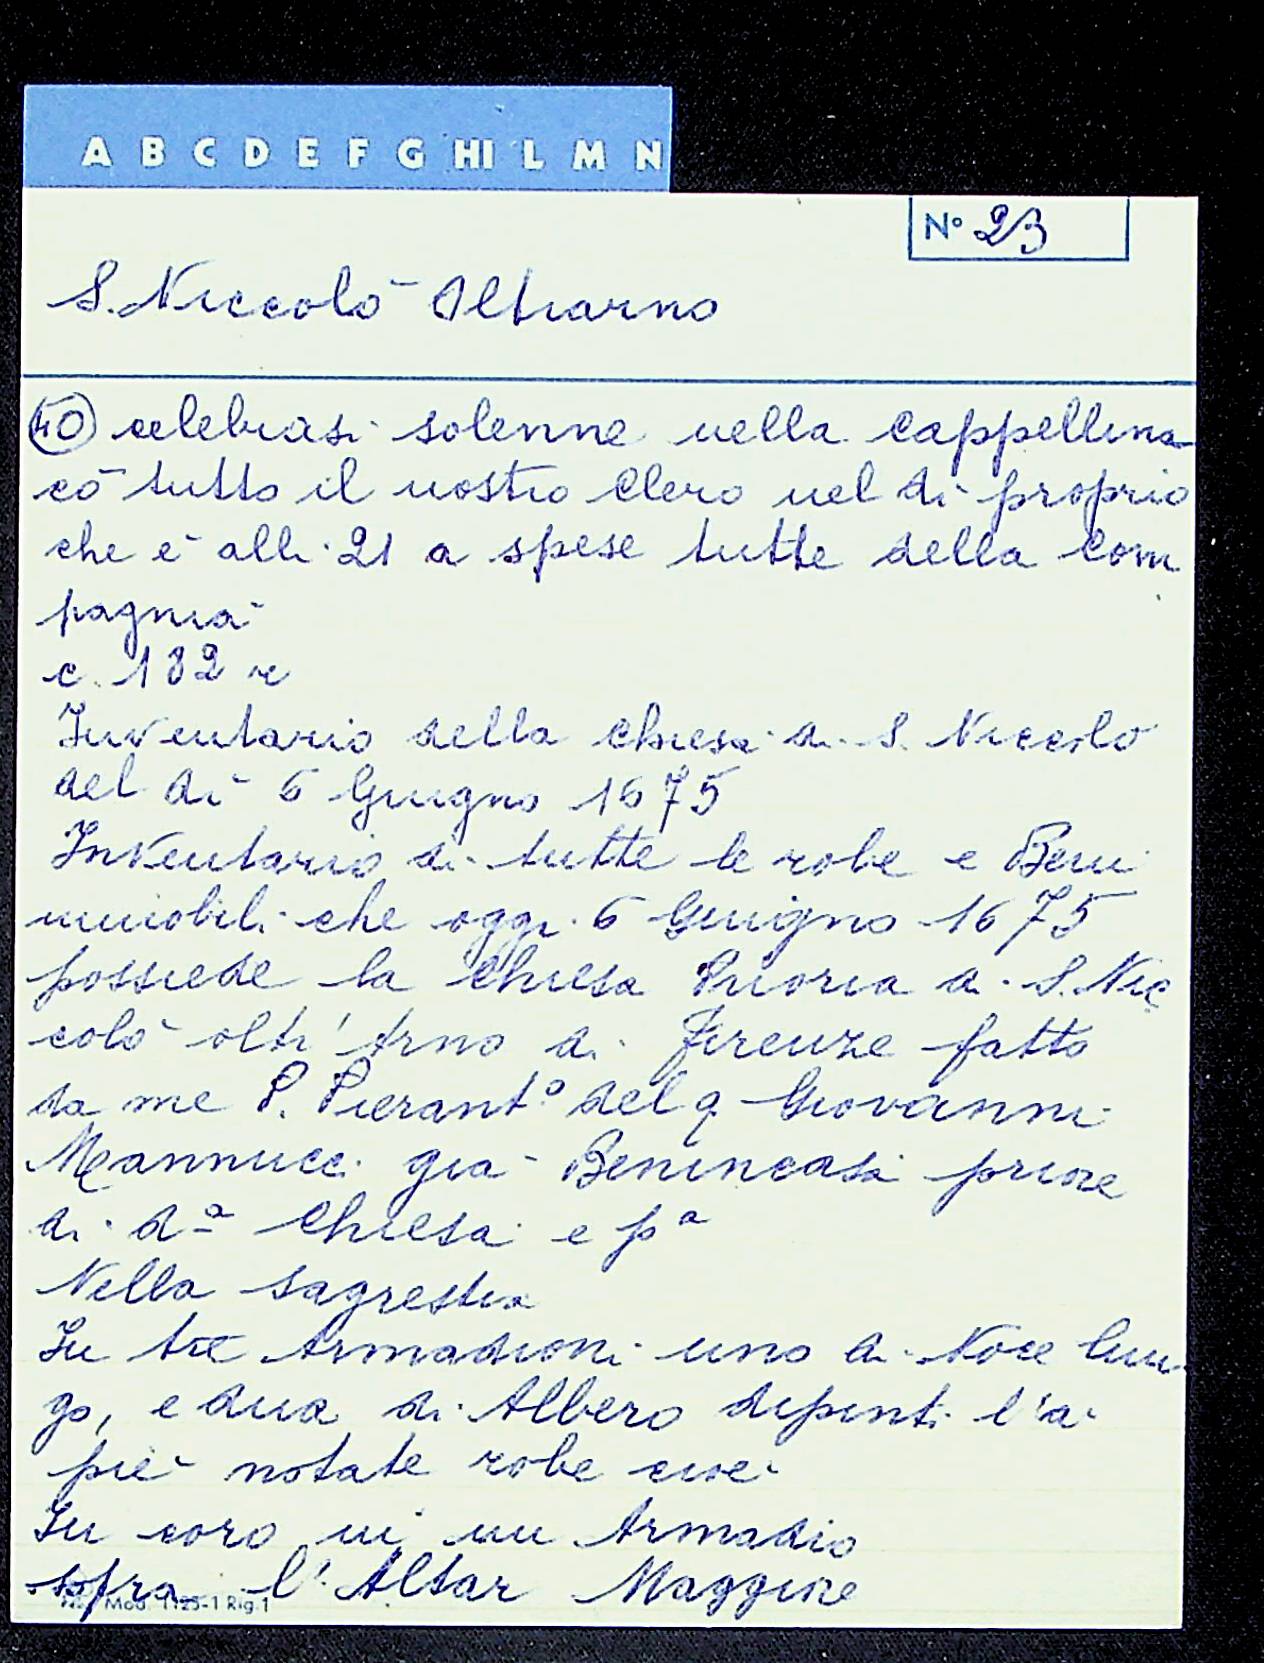 A B C D E F G HI L M N
N° 23
S. Niccolò Oltrarno
40 celebrasi solenne nella cappellina
cō tutto il nostro Clero nel dì proprio
che è alli 21 a spese tutte della Com
pagnia
c. 182 r
Inventario della chiesa di S. Niccolò
del dì 6 Giugno 1675
Inventario di tutte le robe e Beni
mobili che oggi 6 Giugno 1675
possiede la Chiesa Prioria di S. Nic
colò oltr'Arno di Firenze fatto
da me P. Pierant.° del q Giovanni
Mannucci già Benincasa priore
di d.ª Chiesa e pª
Nella Sagrestia
In tre Armadioni uno di Noce lun
go, e dua di Albero dipinti l'a
piè notate robe cioè
In coro in un Armadio
sopra l'Altar Maggiore
Mod. 1125-1 Rig.1